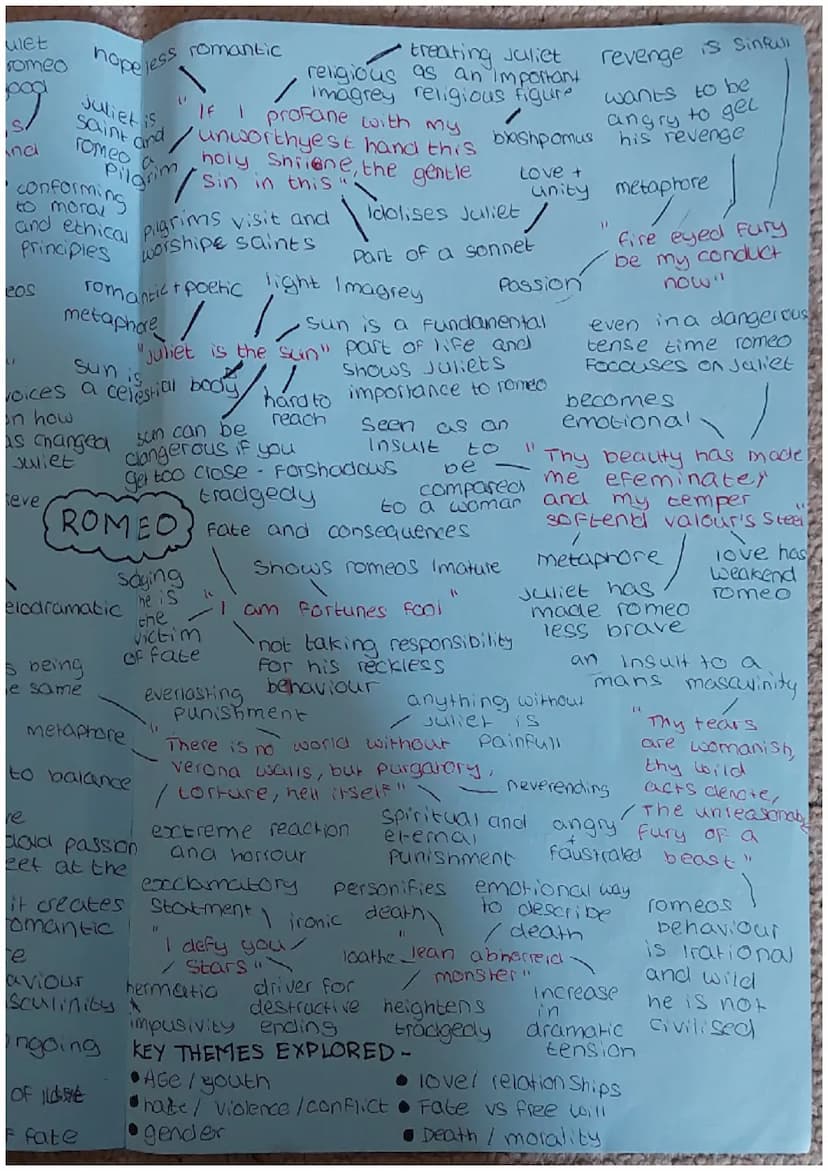 ulet
romeo
ood
s/
and
conforming
to moral
and ethical
principles
eos
"
voices
on how
as changed
Juliet
ieve
elodramatic
s being
e same
metaphore
to balance
re
passion
eet at the
it creates
omantic
re
aviour
sculinity
ongoing
of
f fate
hopeless romantic
religious
Imagrey
treating Juliet
as an important
religious figure
revenge is sinfull
Juliet is
saint and
romeo a
pilgrim
" If I profane with my
unworthyest hand this
holy Shrione, the gentle
Sin in this "
blashpomus
wants to be
angry to get
his revenge
Love +
unity
metaphore
pilgrims visit and
worshipe saints
Idolises Juliet
part of a sonnet
Passion
" fire eyed fury
be my conduct
now"
romantic + poetic
light Imagrey
metaphore
"Juliet is the sun"
sun is a fundamental
part of life and
shows Juliets
importance to romeo
sun is
a celestial body
hard to
reach
sun can be
dangerous if you
get too close - forshadows
tradgedy
even in a dangerous
tense time romeo
focouses on Juliet
becomes
emotional
seen as an
insult to
be
compared
to a woman
" Thy beauty has made
me efeminate,
and my temper
softend valour's steel "
ROMEO
fate and consequences
metaphore
love has
weakend
romeo
saying
he is
the
victim
of fate
shows romeos imature
" I am fortunes fool "
Juliet has
made romeo
less brave
not taking responsibility
for his reckless
behaviour
an insult to a
mans masculinity
everlasting
punishment
anything without
Juliet is
painfull
" There is no world without
verona walls, but purgatory,
torture, hell itself "
neverending
"Thy tears
are womanish,
thy wild
acts denote,
the unreasonable
fury of a
beast"
extreme reaction
and horrour
spiritual and
eternal
punishment
angry
+
faustrated
exclamatory
statment
ironic
personifies
death
emotional way
to describe
death
romeos
behaviour
is irational
and wild
he is not
civilised
" I defy you
stars "
loathe " lean abhorreid
monster"
impusivity
driver for
destructive
ending
heightens
tradgedy
increase
in
dramatic
tension
KEY THEMES EXPLORED -
• AGE / youth
• hate / violence / conflict
• gender
• love / relationships
• Fate vs free will
• Death / morality